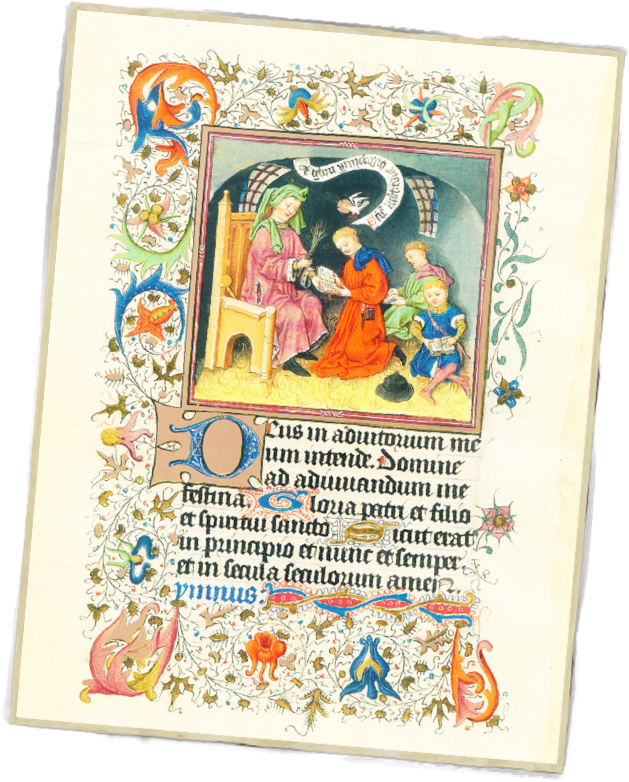 Deus in adiutorium me
um intende. Domine
ad adiuuandum me
festina. Gloria patri et filio
et spiritui sancto Sicut erat
in principio et nunc et semper.
et in secula seculorum amen.
ymnus: